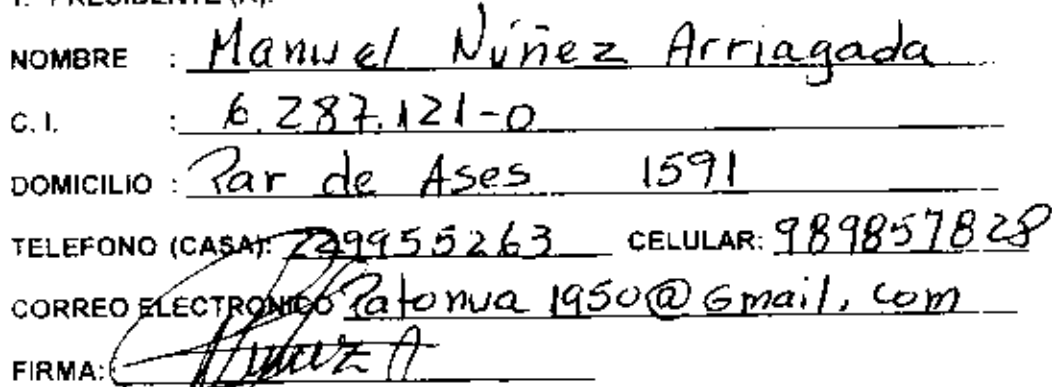 1. PRESIDENTE (A):
NOMBRE : Manuel Núñez Arriagada
C.I. : 6.287.121-0
DOMICILIO : Par de Ases 1591
TELEFONO (CASA): 229955263 CELULAR: 989857828
CORREO ELECTRONICO Patonua 1950@Gmail, com
FIRMA: Nuñez A